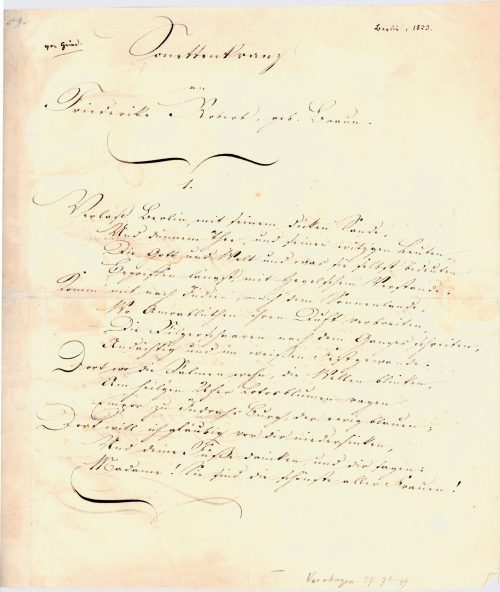 Berlin, 1823.
von Heine.
Sonettenkranz
an
Friederike Robert, geb. Braun.
1.
Verlaß Berlin, mit seinem dicken Sande,
Und dünnen Thee, und seinen witzgen Leuten,
Die Gott und Welt und was sie selbst bedeuten
Begriffen längst mit Hegelschem Verstande.
Komm mit nach Indien, nach dem Sonnenlande,
Wo Ambrablüthen ihren Duft verbreiten,
Die Pilgerschaaren nach dem Ganges schreiten,
Andächtig und im weißen Festgewande.
Dort wo die Palmen wehn, die Wellen blinken,
Am heilgen Ufer Lotosblumen ragen
Empor zu Indras Burg der ewig blauen;
Dort will ich gläubig vor dir niedersinken,
Und deine Füße drücken und dir sagen:
Madame! Sie sind die schönste aller Frauen!
Varnhagen